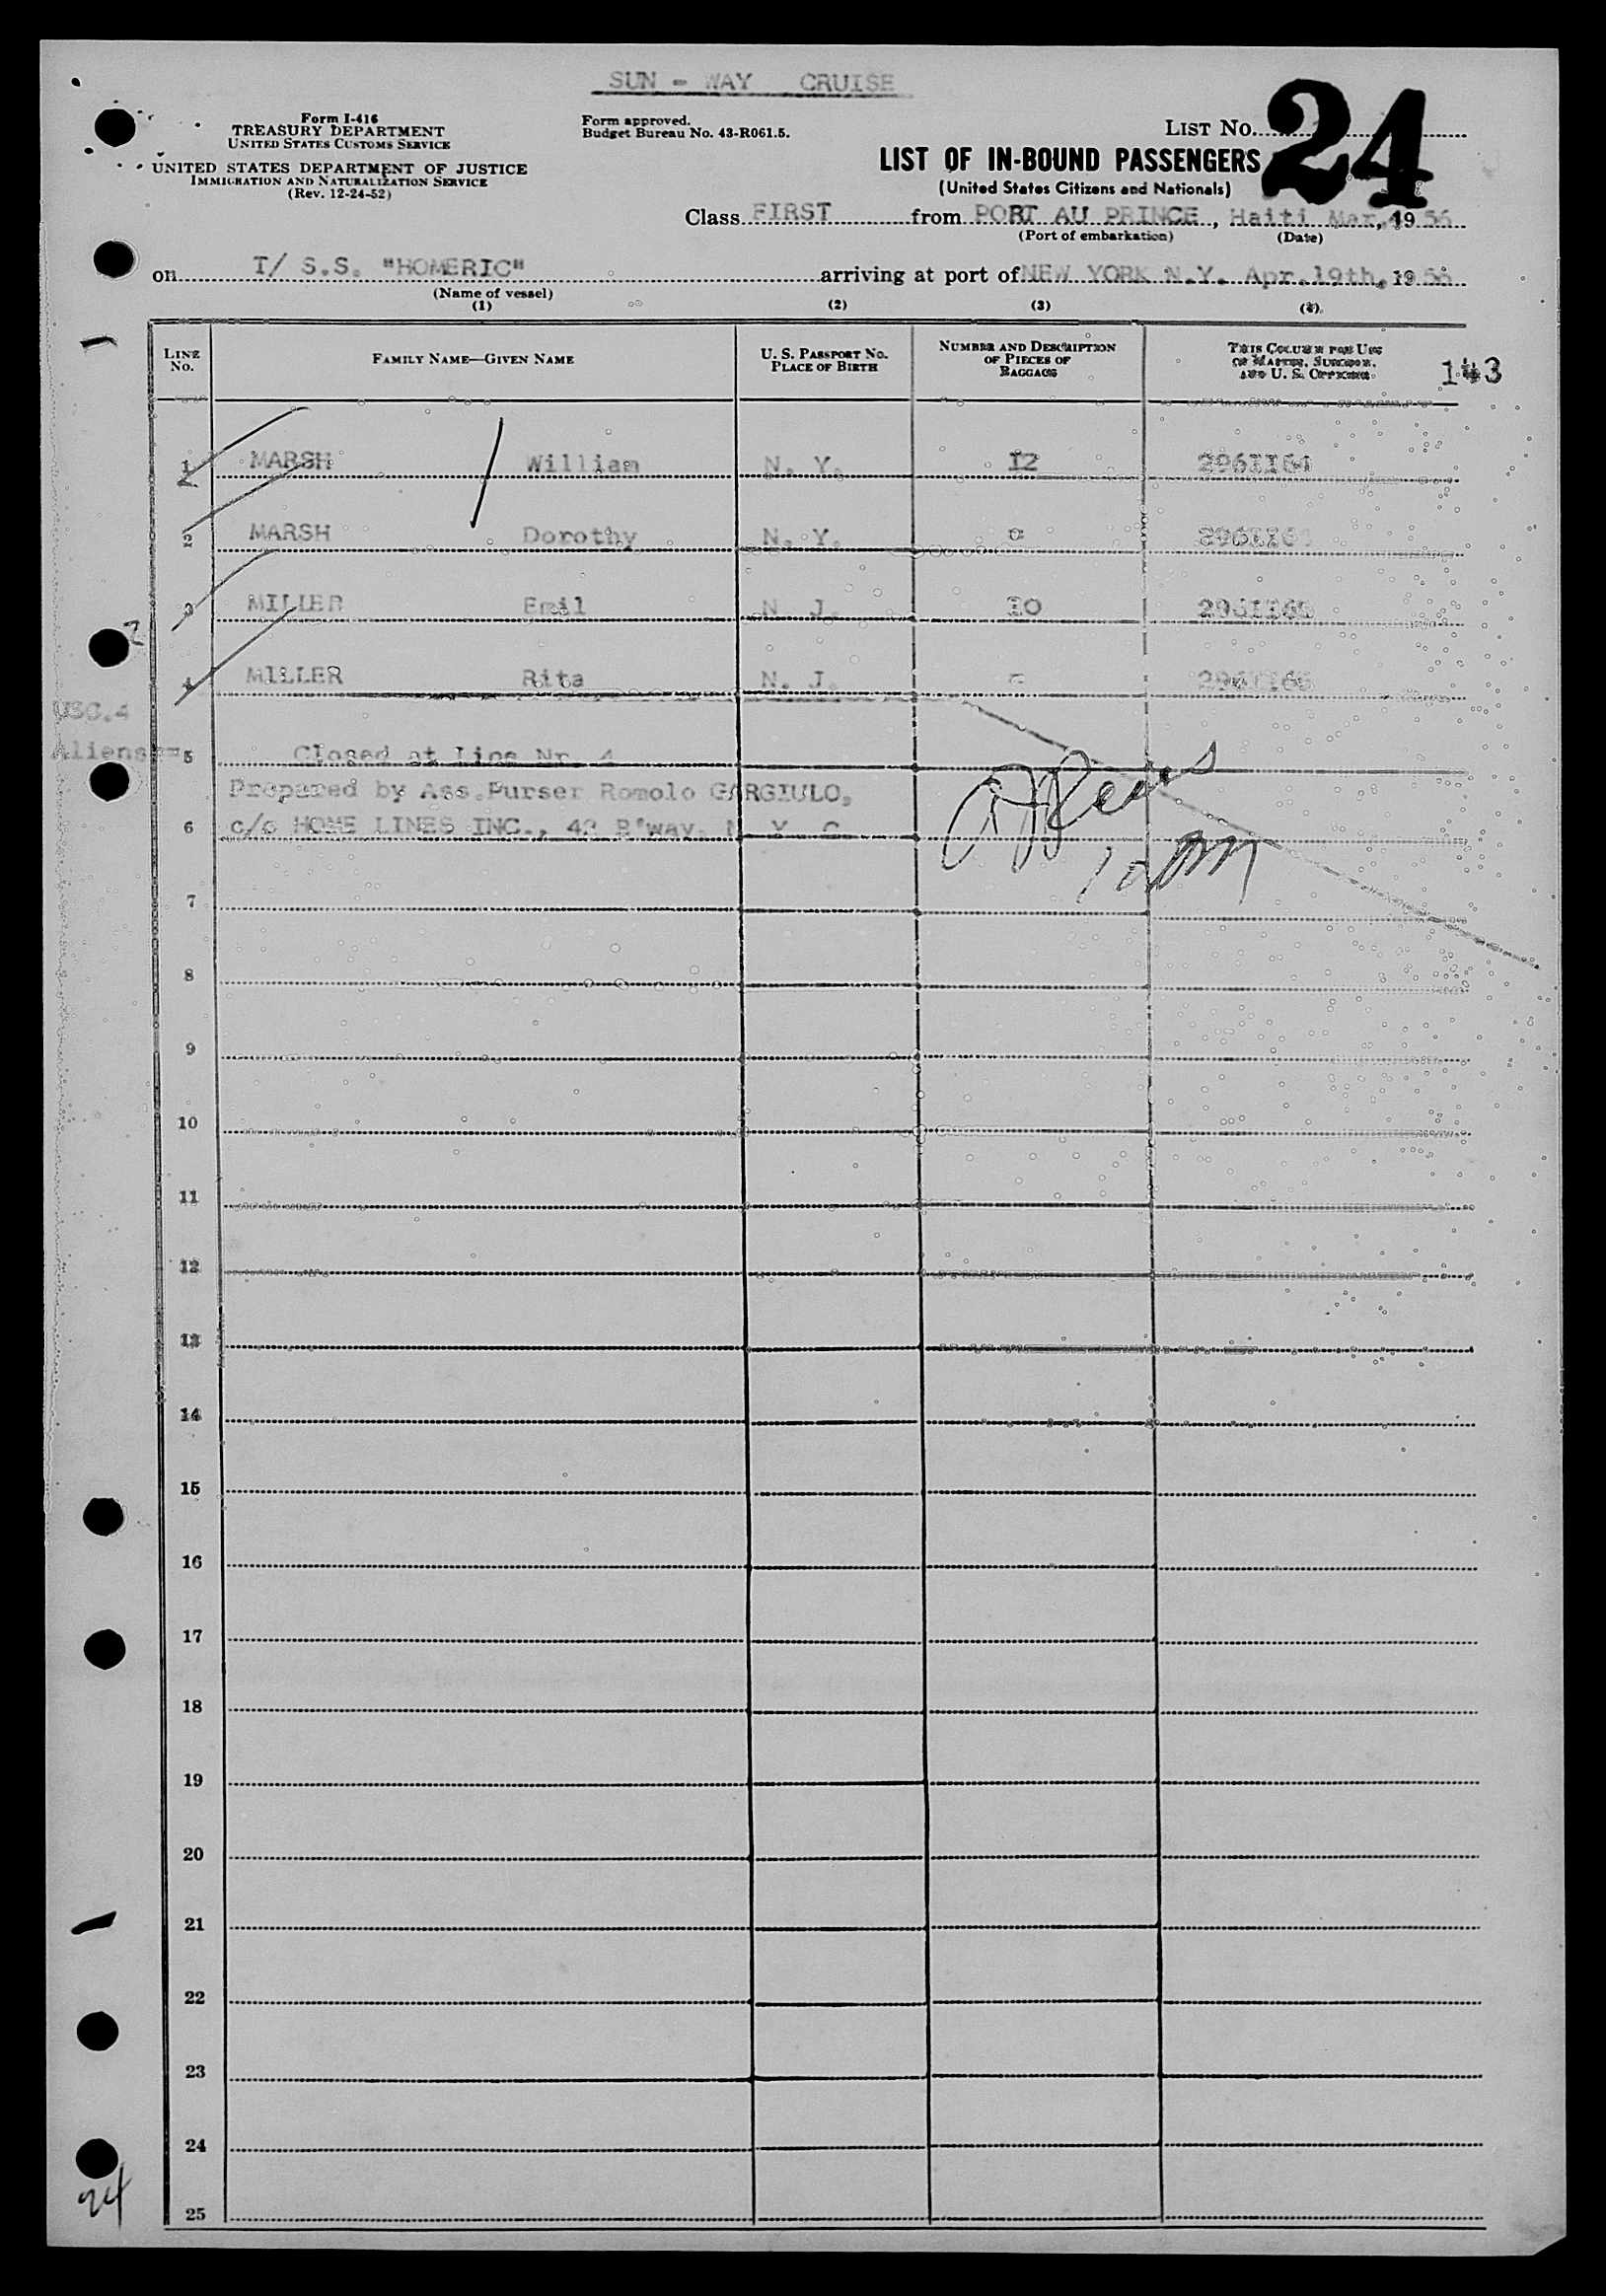 SUN - WAY CRUISE
Form I-416
TREASURY DEPARTMENT
UNITED STATES CUSTOMS SERVICE
UNITED STATES DEPARTMENT OF JUSTICE
IMMIGRATION AND NATURALIZATION SERVICE
(Rev. 12-24-52)
Form approved.
Budget Bureau No. 43-R061.5.
LIST No. 24
LIST OF IN-BOUND PASSENGERS
(United States Citizens and Nationals)
Class FIRST from PORT AU PRINCE, Haiti Mar, 1956
(Port of embarkation) (Date)
on T/ S.S. "HOMERIC" arriving at port of NEW YORK N.Y. Apr.19th, 1956
(Name of vessel)
(1) (2) (3) (4)
LINE No. FAMILY NAME—GIVEN NAME U. S. PASSPORT NO. PLACE OF BIRTH NUMBER AND DESCRIPTION OF PIECES OF BAGGAGE THIS COLUMN FOR USE OF MASTER, SURGEON, AND U. S. OFFICERS 143
1 MARSH William N. Y. I2 296II64
2 MARSH Dorothy N. Y. = 296II64
3 MILLER Emil N. J. IO 296II65
2
4 MILLER Rita N. J. = 296II65
USC.4
Aliens ==
5 Closed at Line Nr. 4
Prepared by Ass.Purser Romolo GARGIULO,
6 c/o HOME LINES INC., 42 B'way. N. Y. C.
7
8
9
10
11
12
13
14
15
16
17
18
19
20
21
22
23
24
25
24